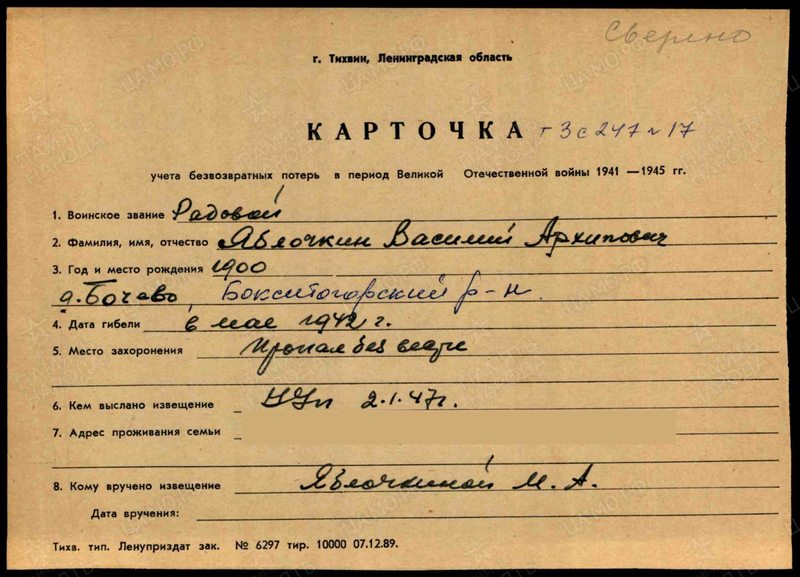 Сверено
г. Тихвин, Ленинградская область
КАРТОЧКА т 3 с 247 № 17
учета безвозвратных потерь в период Великой Отечественной войны 1941 — 1945 гг.
1. Воинское звание Рядовой
2. Фамилия, имя, отчество Яблочкин Василий Архипович
3. Год и место рождения 1900
д. Бочево, Бокситогорский р-н.
4. Дата гибели в мае 1942 г.
5. Место захоронения Пропал без вести
6. Кем выслано извещение 2.1.47г.
7. Адрес проживания семьи
8. Кому вручено извещение Яблочкиной М. А.
Дата вручения:
Тихв. тип. Ленуприздат зак. № 6297 тир. 10000 07.12.89.